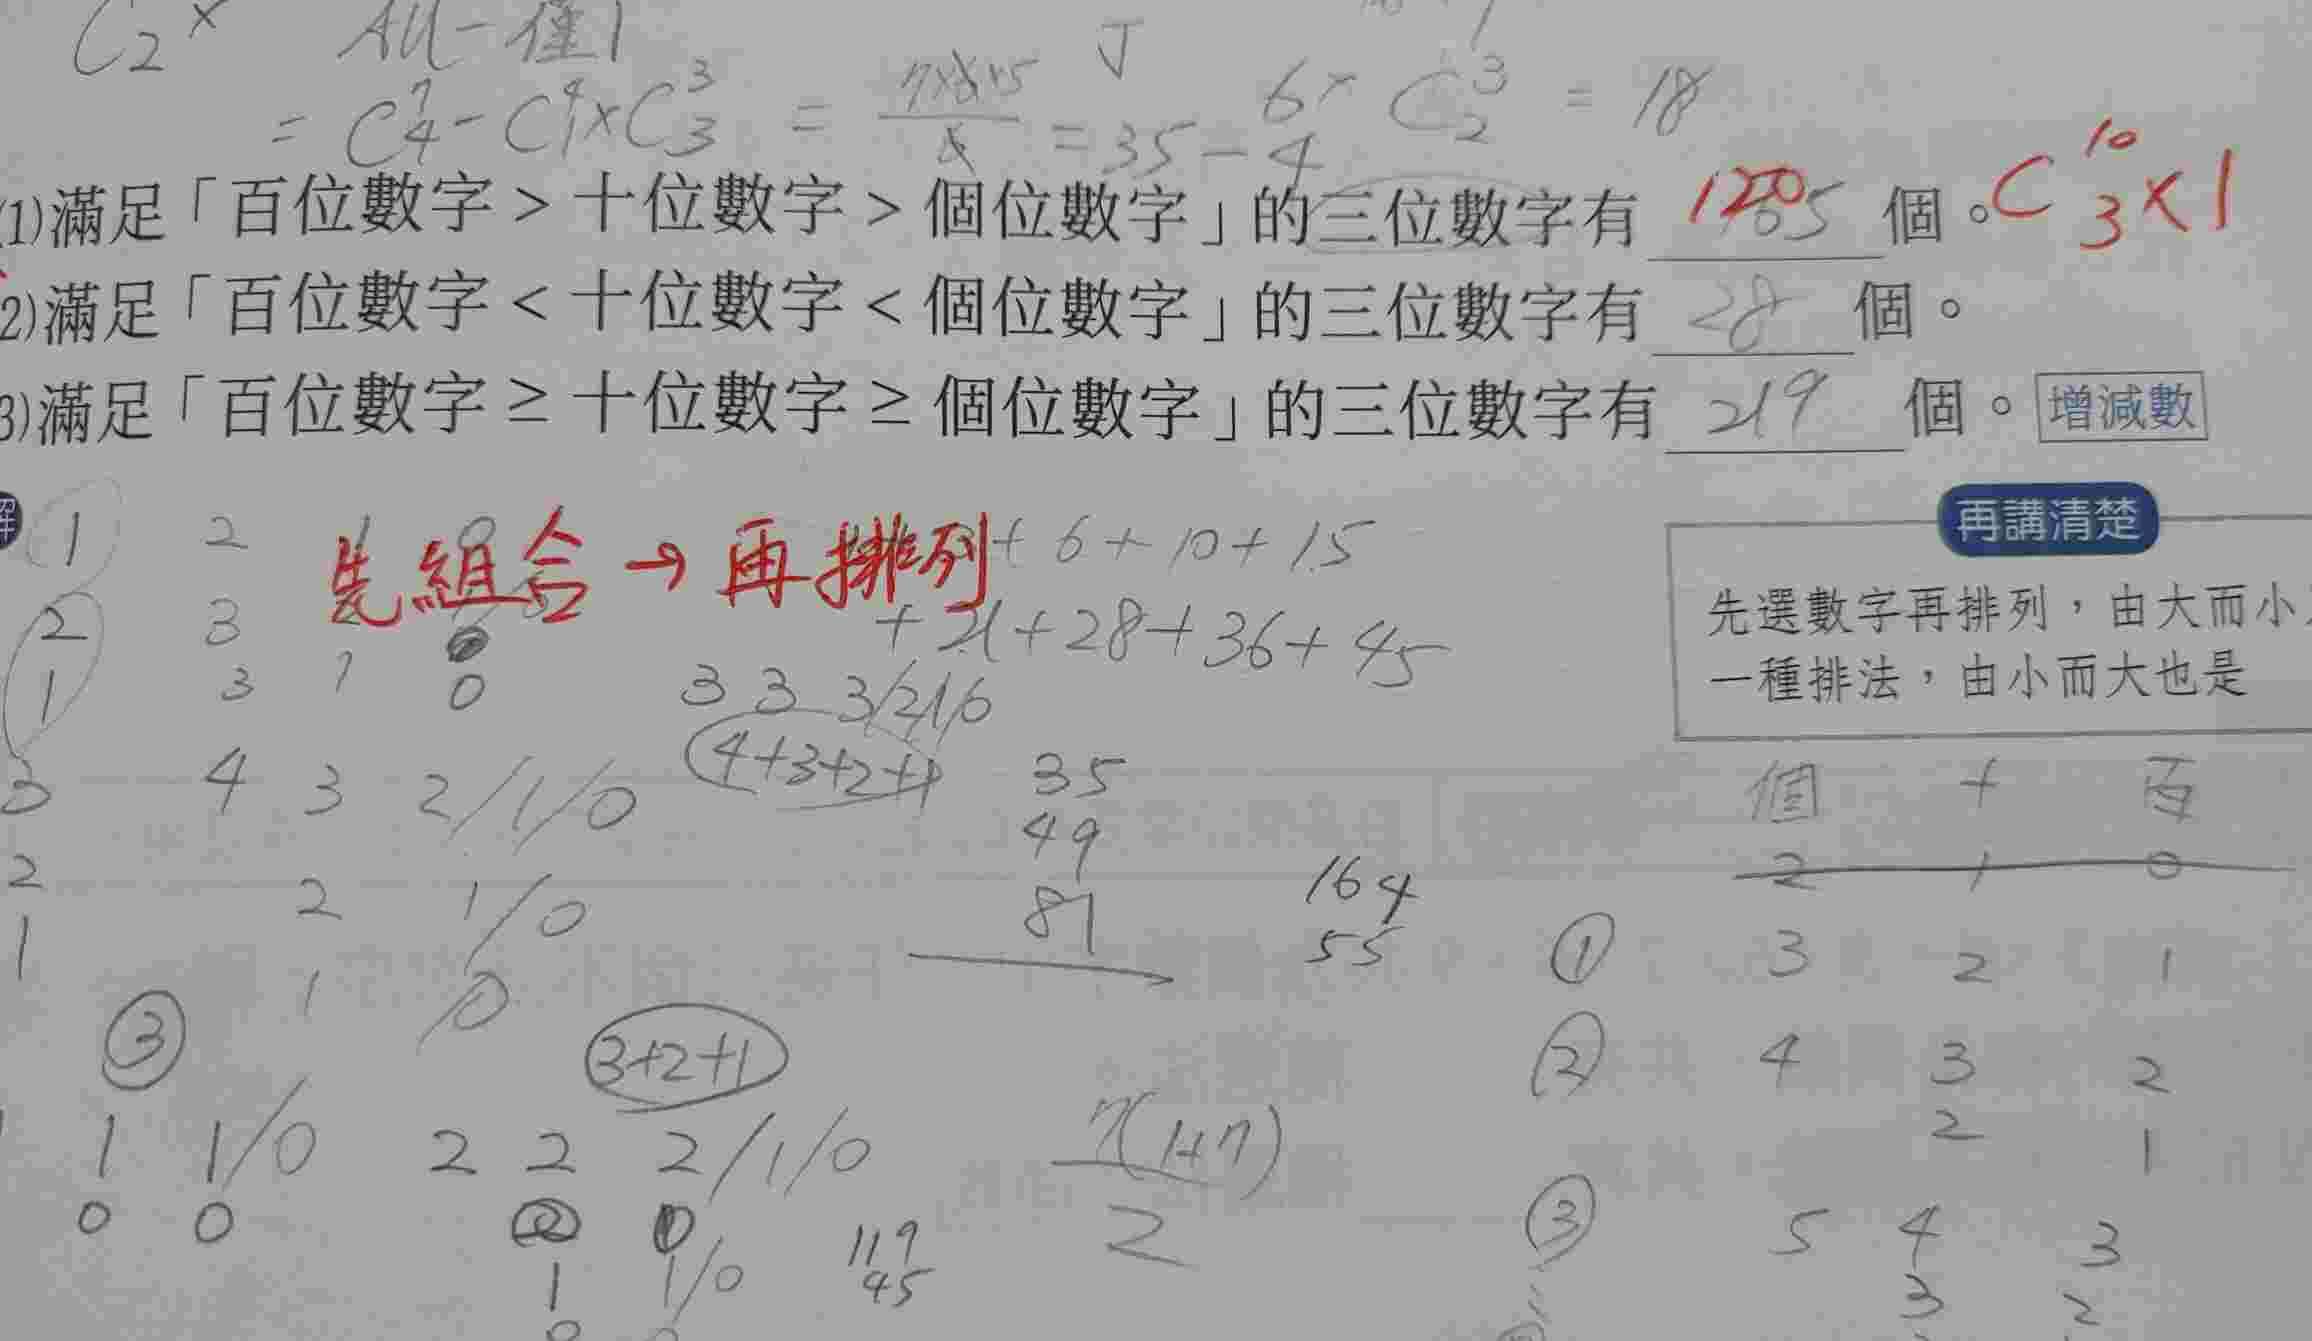 C₂ × All - 僅1
= C⁷₄ - C⁴₁ × C³₃ = 7×6×5 / 6 = 35 - 4
6 × C³₂ = 18
(1)滿足「百位數字 > 十位數字 > 個位數字」的三位數字有 120 個。C¹⁰₃ × 1
2)滿足「百位數字 < 十位數字 < 個位數字」的三位數字有 28 個。
3)滿足「百位數字 ≥ 十位數字 ≥ 個位數字」的三位數字有 219 個。 增減數
先組合 → 再排列
+ 6 + 10 + 15
+ 21 + 28 + 36 + 45
再講清楚
先選數字再排列，由大而小
一種排法，由小而大也是
1 2
2 3
1 3 1 0
3 3 3/2/1/0
4+3+2+1
3 4 3 2/1/0
2 2 1/0
1 1 0
35
49
81
164
55
個 十 百
2 1 0
① 3 2 1
② 4 3 2
2 1
③ 5 4 3
3 2
③
3+2+1
1 1/0 2 2 2/1/0
0 0
1 1/0
119
45
7(1+7)
2